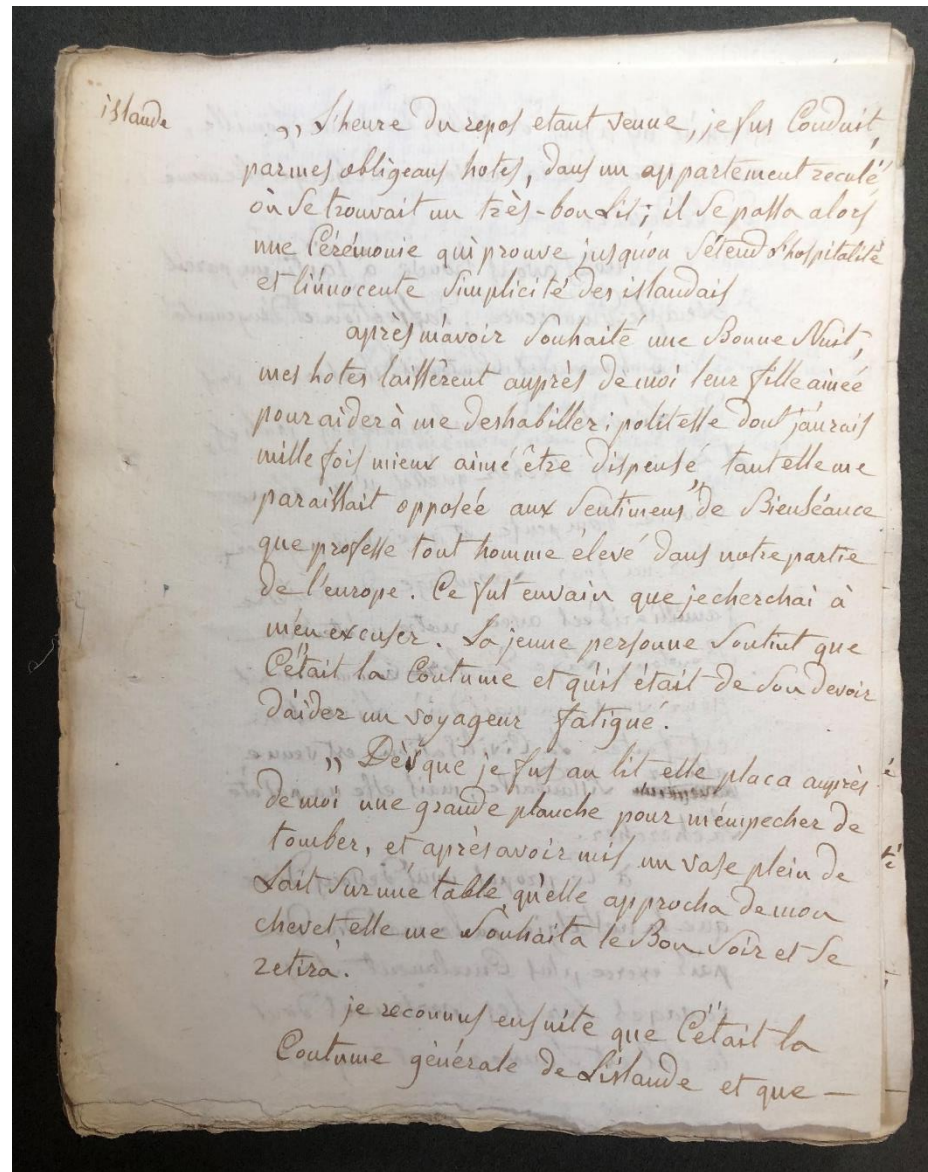 islande
,, L'heure du repos etant venue, je fus Conduit,
par mes obligeans hotes, dans un appartement reculé
où Se trouvait un très-bon Lit; il Se passa alors
une Cérémonie qui prouve jusqu'ou S'étend L'hospitalité
et L'innocente Simplicité des islandais
après m'avoir Souhaité une Bonne Nuit,
mes hotes laissèrent auprès de moi leur fille ainée
pour aider à me deshabiller; politesse dont j'aurais
mille fois mieux aimé être dispensé, tant elle me
paraissait opposée aux Sentimens de Bienséance
que professe tout homme élevé dans notre partie
de l'europe. Ce fut envain que je cherchai à
m'en excuser. La jeune personne Soutint que
C'était la Coutume et qu'il était de Son devoir
d'aider un voyageur fatigué.
,, Dès que je fus au lit, elle placa auprès
de moi une grande planche pour m'empecher de
tomber, et après avoir mis un vase plein de
Lait Sur une table qu'elle approcha de mon
chevet elle me Souhaita le Bon Soir et Se
retira.
je reconnus ensuite que C'était la
Coutume générale de L'islande et que —